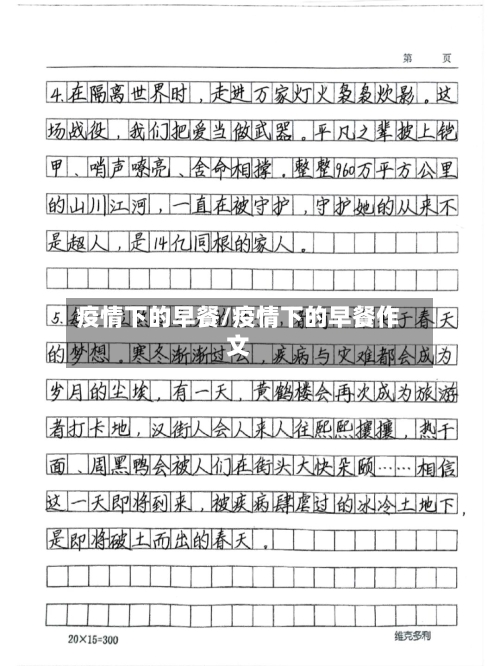 第 页
4.在隔离世界时，走进万家灯火袅袅炊影。这
场战役，我们把爱当做武器。平凡之辈披上铠
甲、哨声嘹亮、舍命相撑。整整960万平方公里
的山川江河，一直在被守护，守护她的从来不
是超人，是14亿同根的家人。
疫情下的早餐/疫情下的早餐作
文
5.
于春天
的梦想。寒冬渐渐过去，疾病与灾难都会成为
岁月的尘埃，有一天，黄鹤楼会再次成为旅游
者打卡地，汉街人会人来人往熙熙攘攘，热干
面、周黑鸭会被人们在街头大快朵颐……相信
这一天即将到来，被疾病肆虐过的冰冷土地下，
是即将破土而出的春天。
20×15=300
维克多利